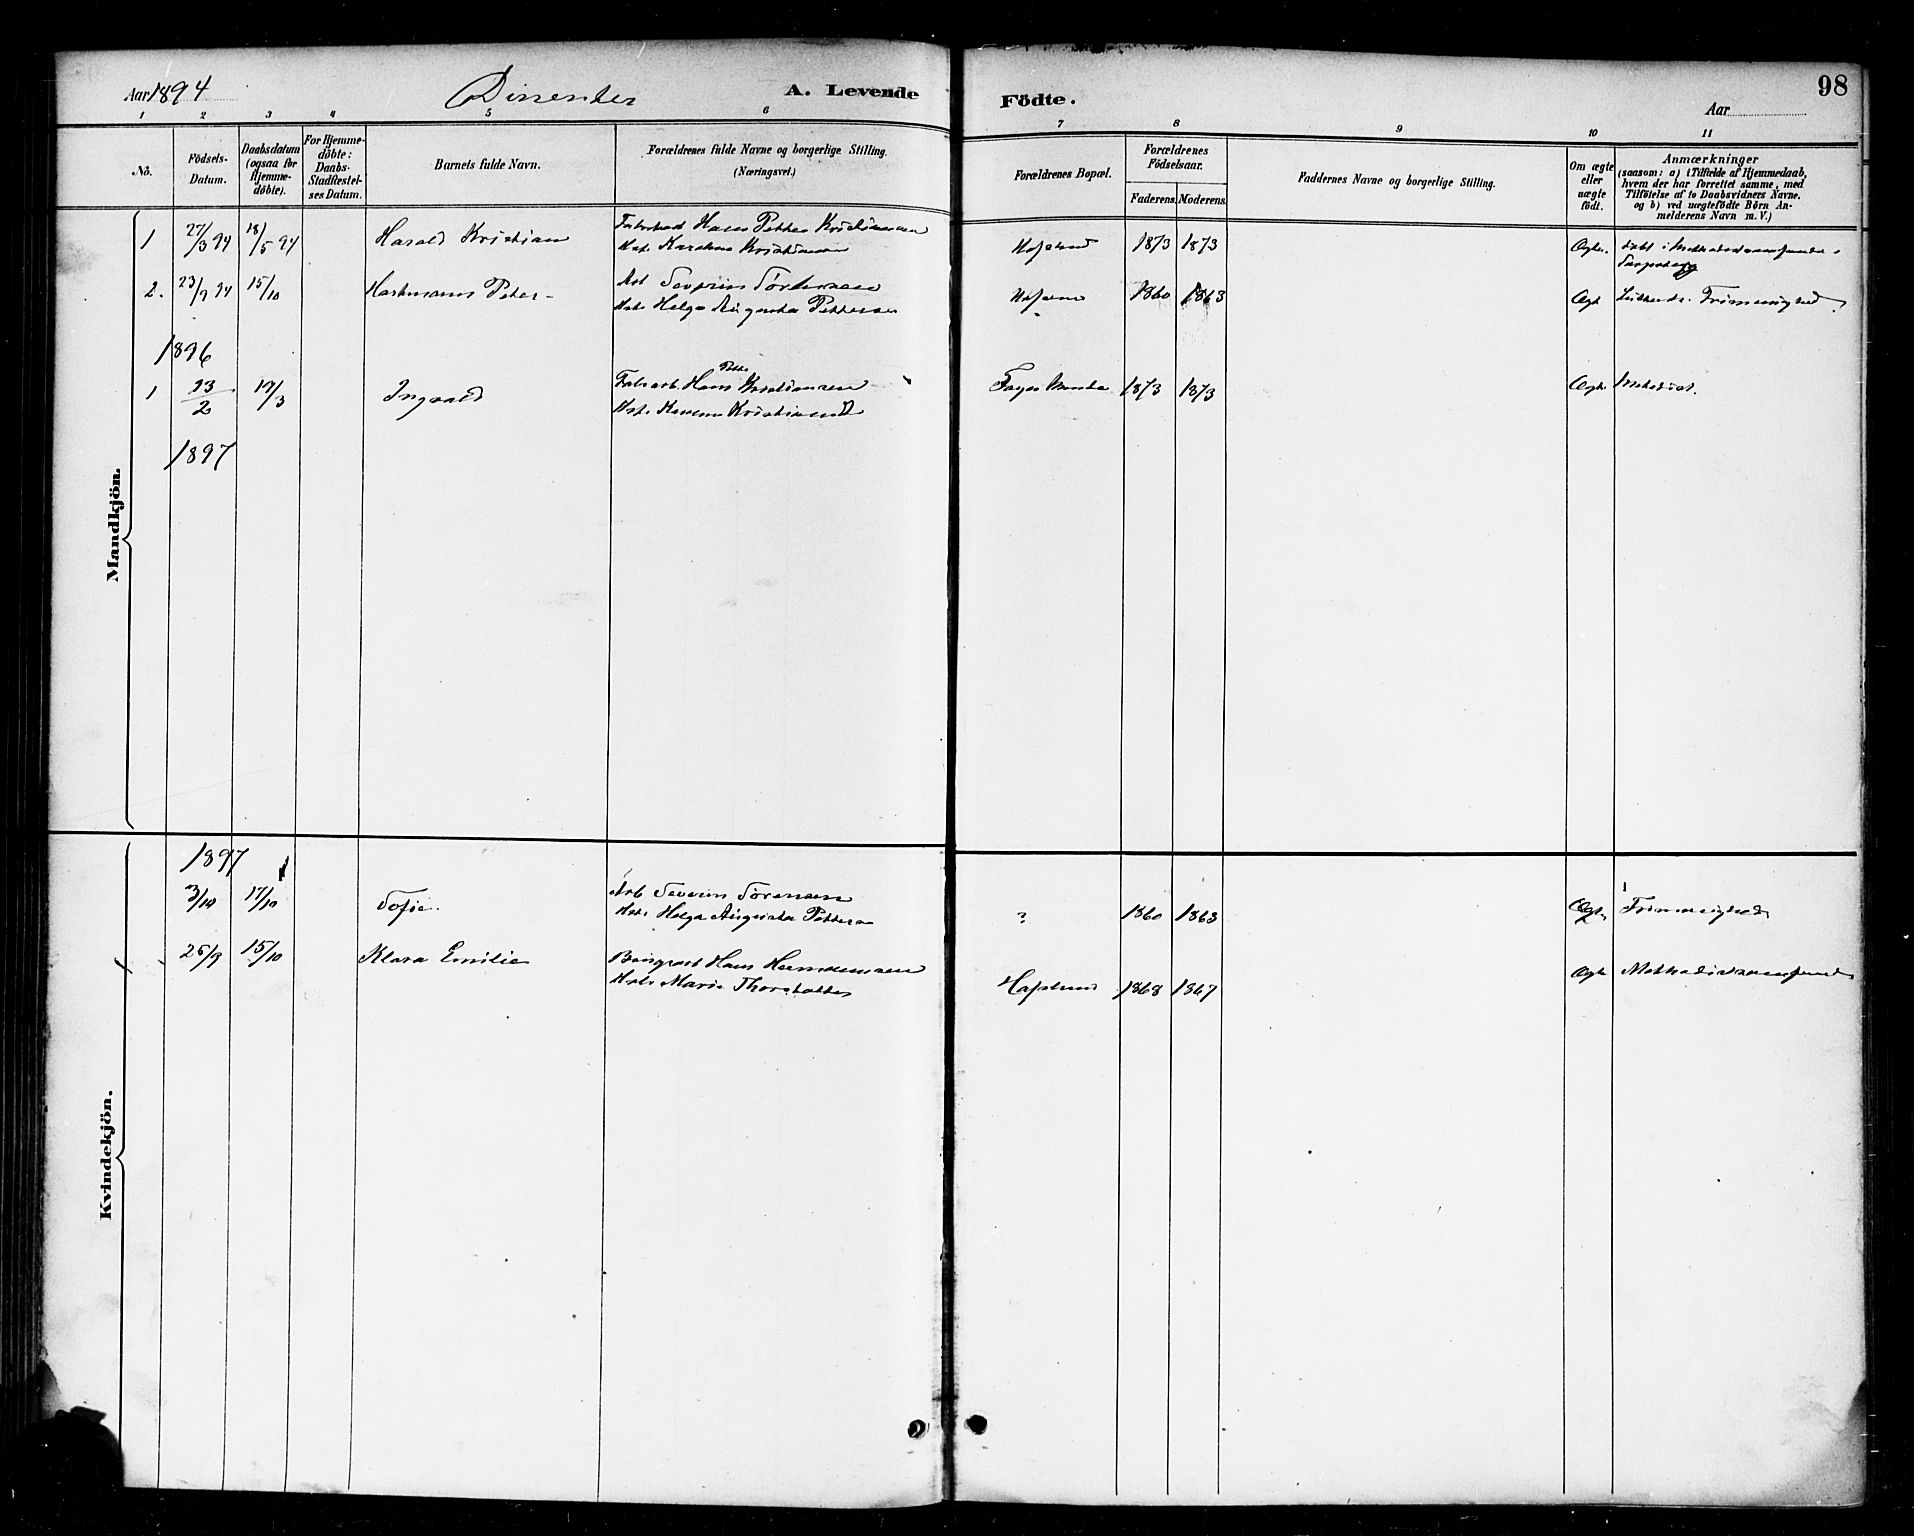 Aar 1894 Dissenter A. Levende Födte. Aar 98
1 2 3 4 5 6 7 8 9 10 11
No.
Födsels-Datum.
Daabsdatum (ogsaa for Hjemme-döbte).
For Hjemme-döbte: Daabs-Stadfæstel-ses Datum.
Barnets fulde Navn.
Forældrenes fulde Navne og borgerlige Stilling.
(Næringsvei.)
Forældrenes Bopæl.
Forældrenes Födselsaar.
Faderens. Moderens.
Faddernes Navne og borgerlige Stilling.
Om ægte eller uægte født.
Anmærkninger
(saasom: a) i Tilfælde af Hjemmedaab,
hvem der har forrettet samme, med
Tilföielse af to Daabsvidners Navne.
og b) ved uægtefödte Börn An-
melderens Navn m. V.)
Mandkjön.
1 27/3 94 18/5 94 Harald Kristian Hans Petter Kristiansen
Kristiansen Hafslund 1873 1873 Ægte.
2. 23/9 94 15/10 Hartmann Peter - Arb Severin Sörensen
Helga Augusta Petters Hafslund 1860 1863 Ægt Frimenighed
1896
1 13/2 19/3 Ingvald Fabarb. Hans Pette Kristiansen
Kristians 1873 1873 Ægte Metodist.
1897
Kvindekjön.
1897
3/10 17/10 Sofie. Arb Severin Sörensen
Helga Augusta Petters ? 1860 1863 Ægte Frimenighed
25/9 15/10 Klara Emilie Hans Hermansen
Marie Hafslund 1868 1867 Ægte Methodistsamfund